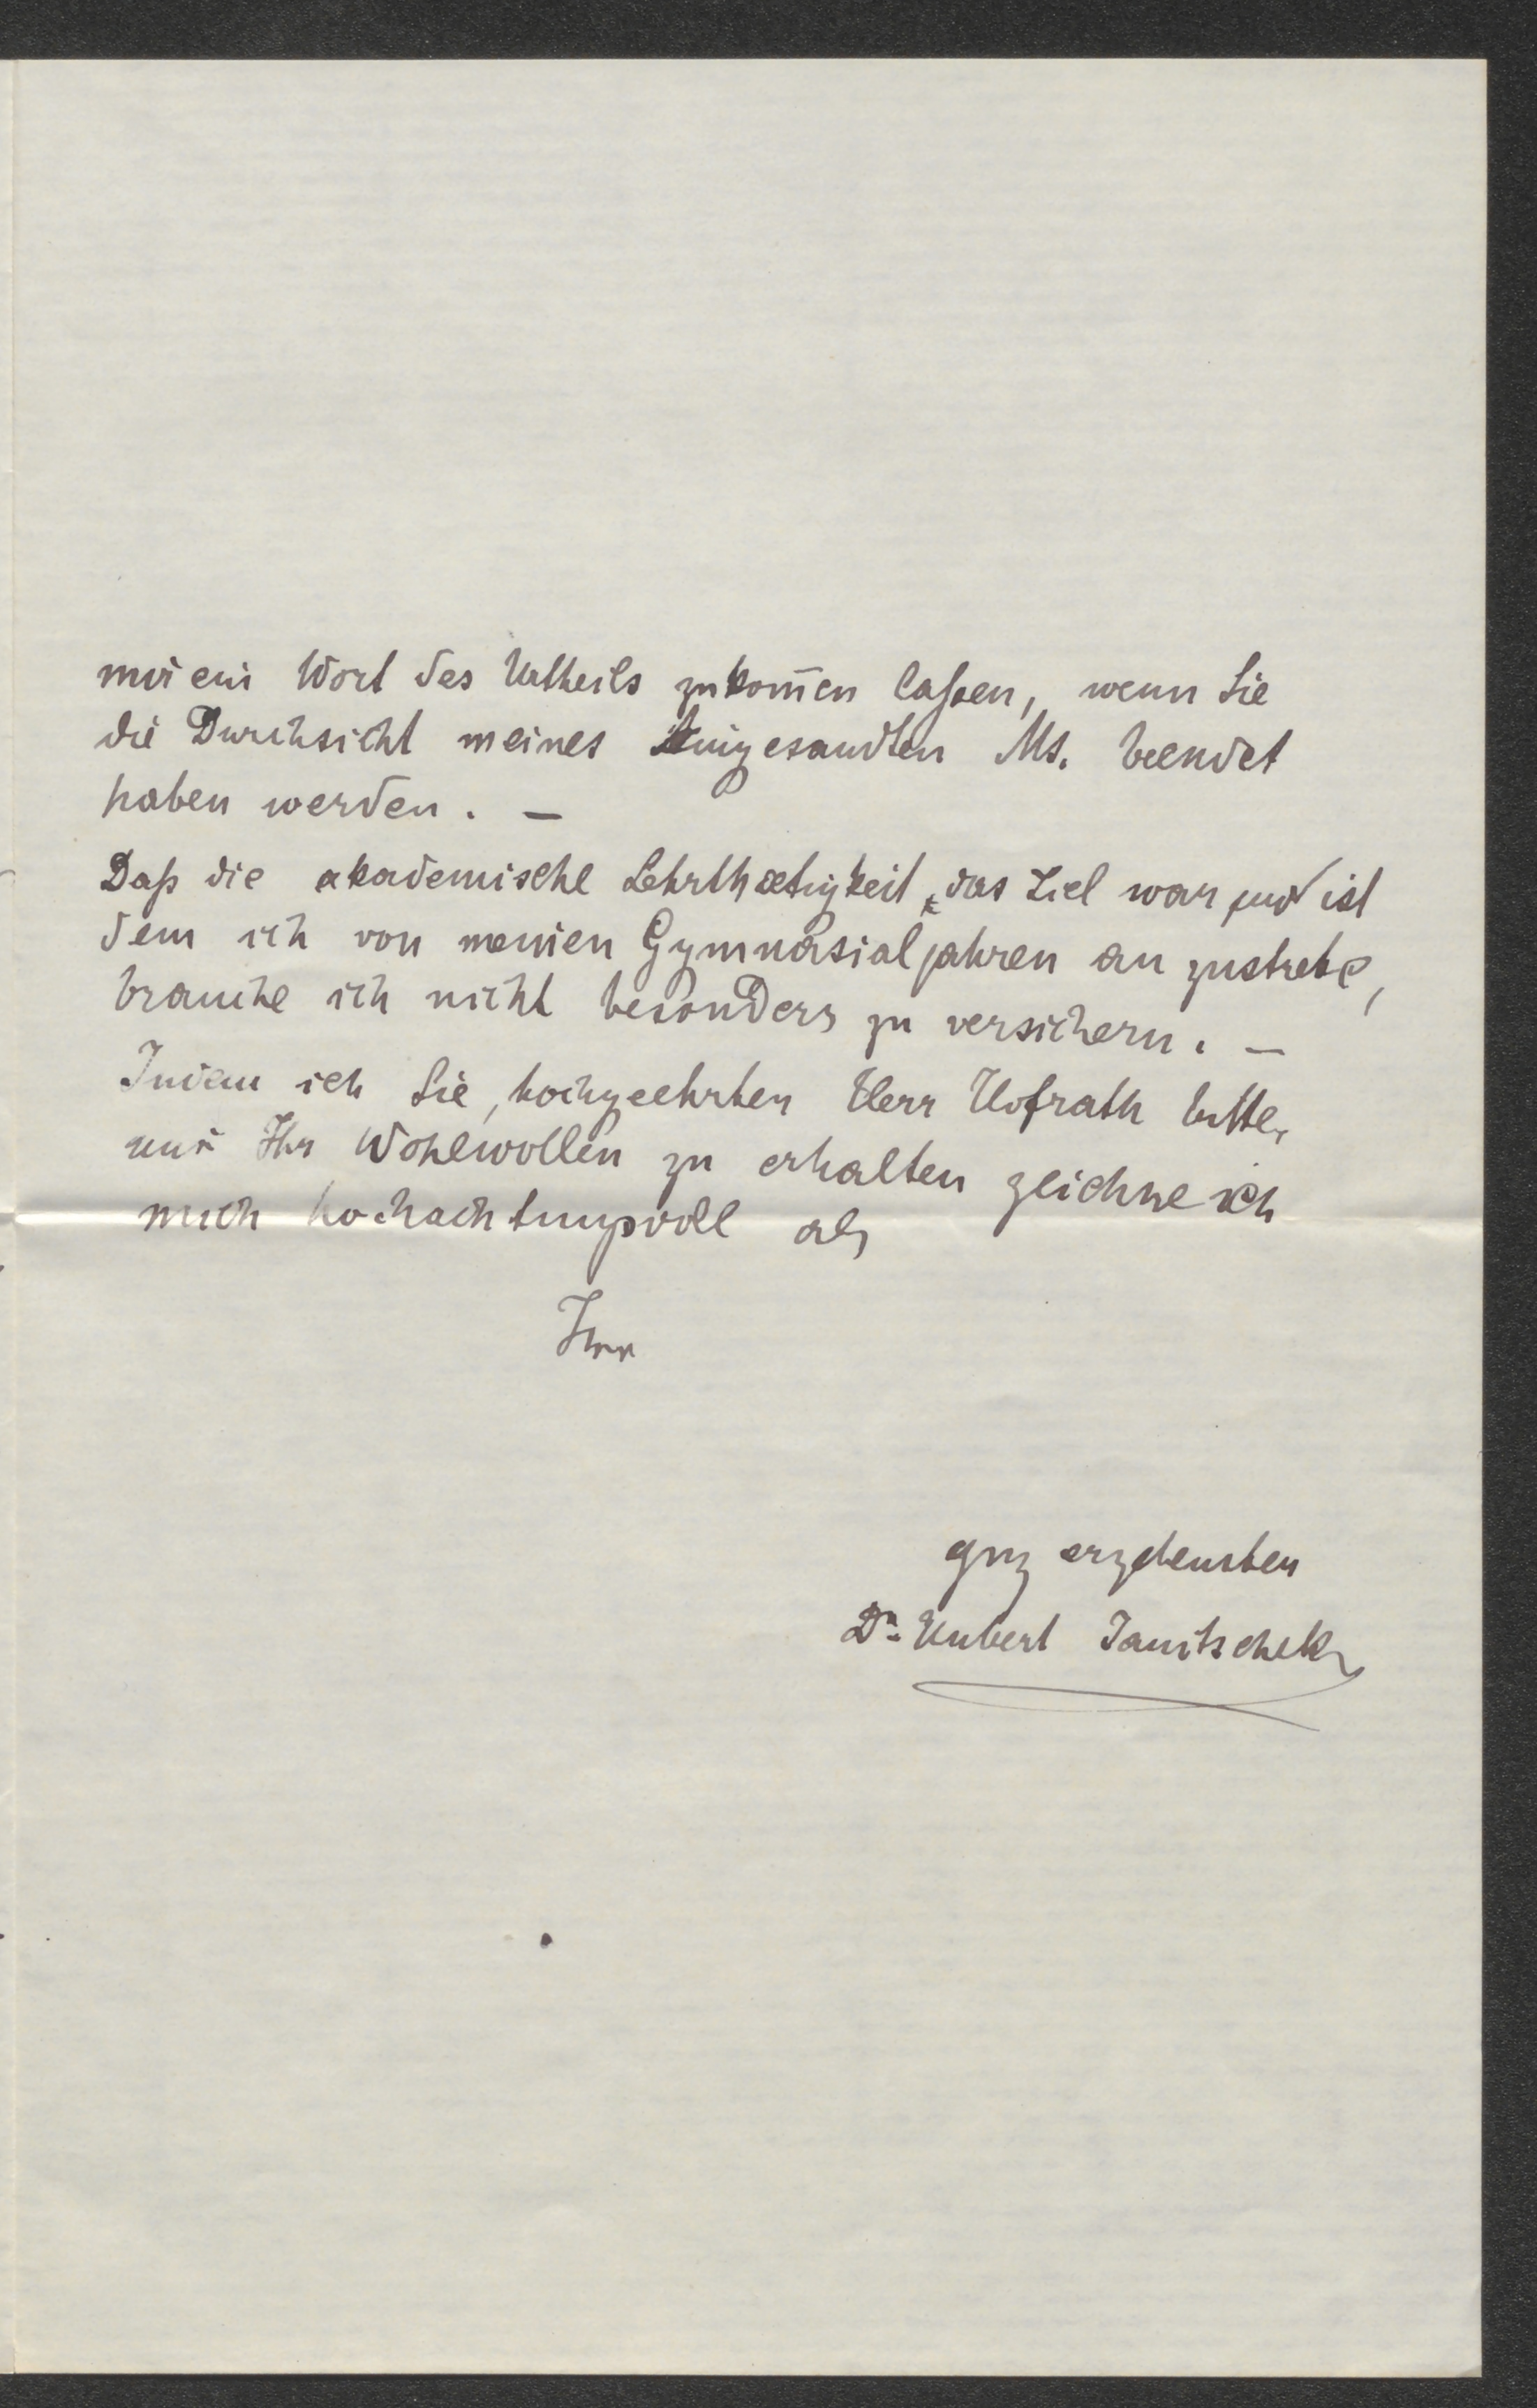 mir ein Wort des Urtheils zukom̄en laßen, wenn Sie
die Durchsicht meines eingesandten Ms. beendet
haben werden. —
Daß die akademische Lehrthætigkeit das Ziel war und ist
dem ich von meinen Gymnasialjahren an zustrebe,
brauche ich nicht besonders zu versichern. —
Indem ich Sie, hochgeehrter Herr Hofrath bitte,
mir Ihr Wohlwollen zu erhalten zeichne ich
mich hochachtungsvoll als
Ihr
ganz ergebenster
Dr. Hubert Janitschek